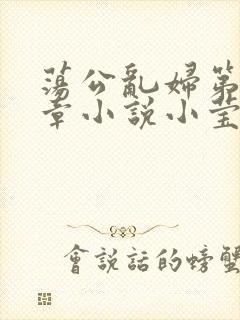 蕩公亂婦第
章小說小莹
會說話的螃蟹